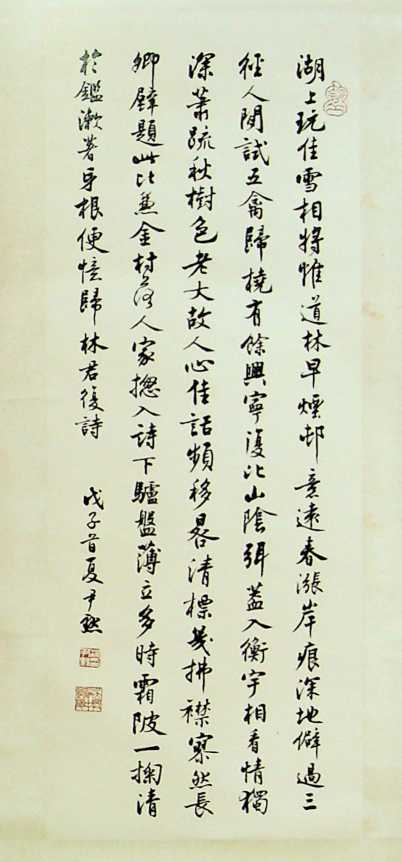 湖上玩佳雪相將惟道林早煙邨意遠春漲岸痕深地僻過三
徑人閒試五禽歸橈有餘興寧復比山陰弭蓋入衡宇相看情獨
深蕭疏秋樹色老大故人心佳話頻移晷清標幾拂襟然長
卿壁題此比兼金村落人家總入詩下驢盤薄立多時霜陂一掬清
於鑑漱著牙根便憶歸林君復詩
戊子首夏尹默